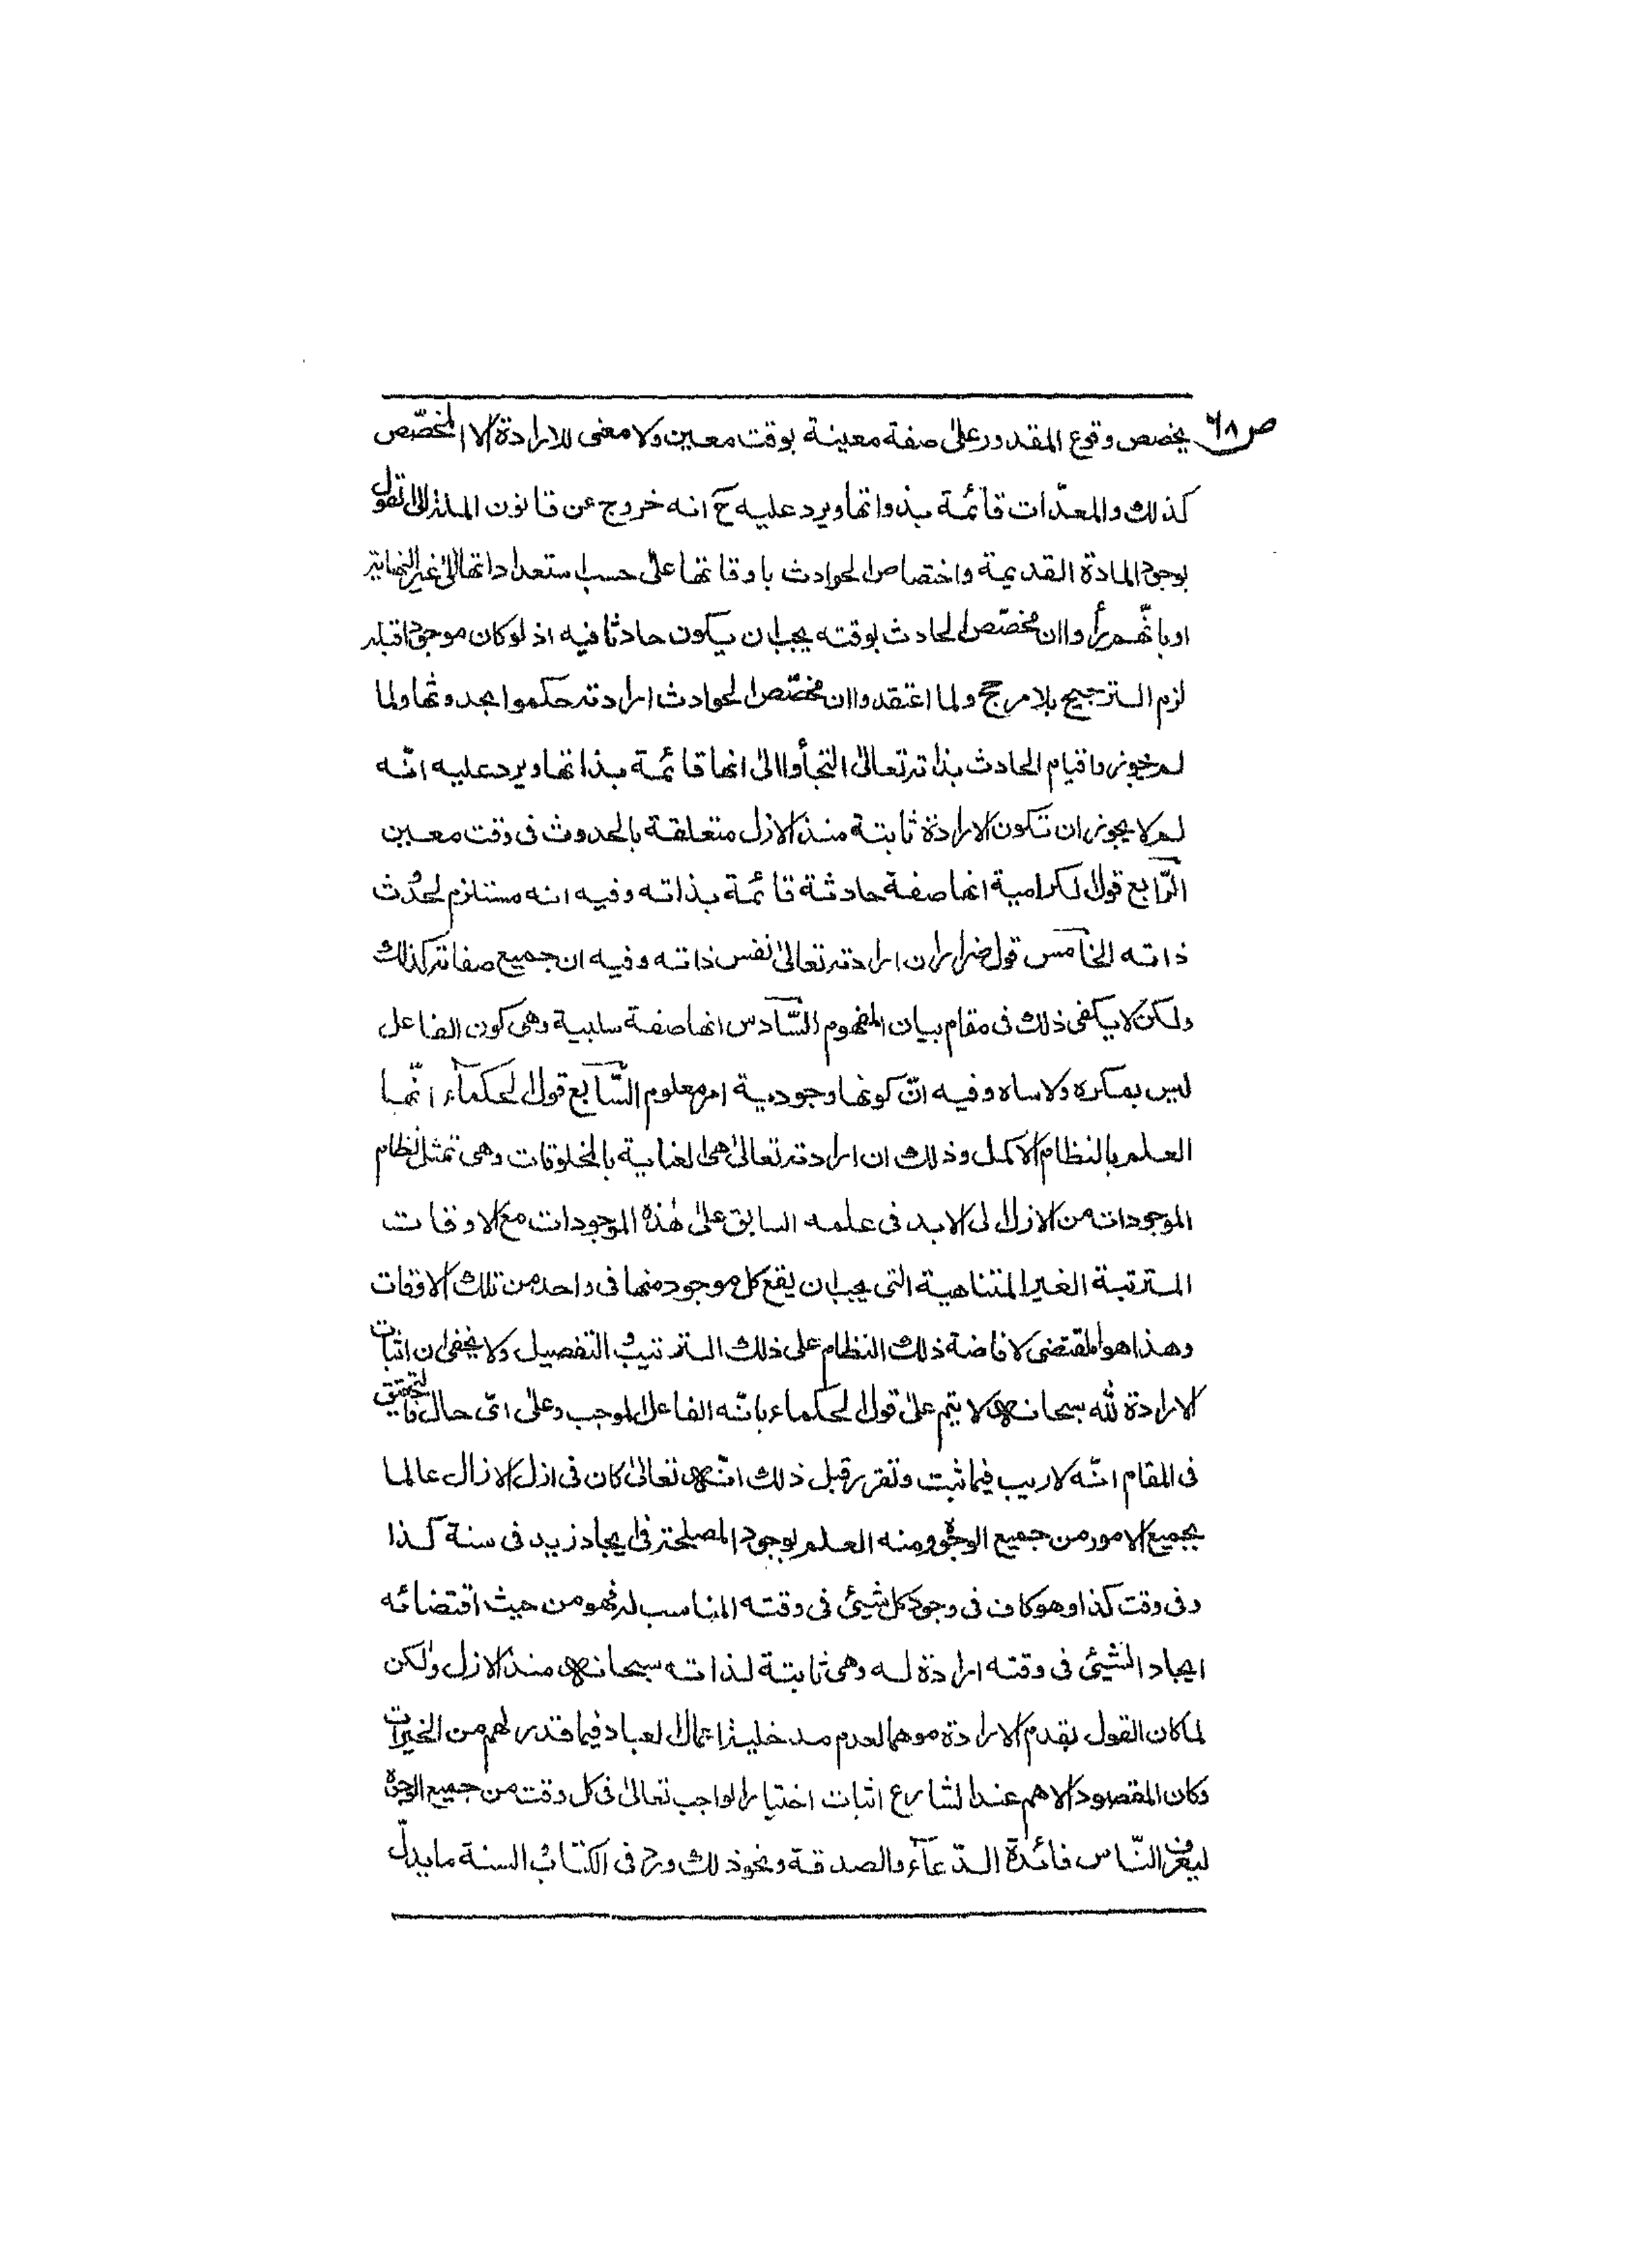 ص ٦٨
يخصص وقوع المقدور على صفة معينة بوقت معين ولا معنى للارادة الا المخصّص
كذلك والمعدّات قائمة بذواتها ويرد عليه ح انه خروج عن قانون الملة الى تقول
بوجود المادة القديمة واختصاص الحوادث باوقاتها على حسب استعداداتها الى غير النهاية
او بانّهم رأوا ان مخصّص الحادث بوقته يجب ان يكون حادثا فيه اذ لو كان موجودا قبله
لزم الترجيح بلا مرجح ولما اعتقدوا ان مخصّص الحوادث ارادته حكموا بحدوثها ولما
لم يجوزوا قيام الحادث بذاته تعالى التجأوا الى انها قائمة بذاتها ويرد عليه انّه
لم لا يجوز ان تكون الارادة ثابتة منذ الازل متعلقة بالحدوث فى وقت معين
الرّابع قول الكرامية انها صفة حادثة قائمة بذاته وفيه انه مستلزم لحدوث
ذاته الخامس قول ضرار ان ارادته تعالى نفس ذاته وفيه ان جميع صفاته كذلك
ولكن لا يكفى ذلك فى مقام بيان المفهوم السّادس انها صفة سلبية وهى كون الفاعل
ليس بمكره ولا ساه وفيه انّ كونها وجودية امر معلوم السّابع قول الحكمآء انّها
العلم بالنظام الاكمل وذلك ان ارادته تعالى هى العناية بالمخلوقات وهى تمثل نظام
الموجودات من الازل الى الابد فى علمه السابق على هذه الموجودات مع الاوقات
المترتبة الغير المتناهية التى يجب ان يقع كل موجود منها فى واحد من تلك الاوقات
وهذا هو المقتضى لافاضة ذلك النظام على ذلك الترتيب والتفصيل ولا يخفى ان اثبات
الارادة لله سبحانه لا يتم على قول الحكماء بانّه الفاعل الموجب وعلى اىّ حال فالتحقيق
فى المقام انّه لا ريب فيما ثبت وتقرر قبل ذلك انّه تعالى كان فى ازل الازال عالما
بجميع الامور من جميع الوجوه ومنه العلم بوجود المصلحة فى ايجاد زيد فى سنة كذا
وفى وقت كذا وهو كاف فى وجود كل شيئ فى وقته المناسب له فهو من حيث اقتضائه
ايجاد الشيئ فى وقته ارادة له وهى ثابتة لذاته سبحانه منذ الازل ولكن
لما كان القول بقدم الارادة موهما لعدم مدخلية اعمال العباد فيما قدر لهم من الخيرات
وكان المقصود الاهم عند الشارع اثبات اختيار الواجب تعالى فى كل وقت من جميع الوجوه
ليعرف النّاس فائدة الدّعآء والصدقة ونحو ذلك ورد فى الكتاب والسنة ما يدلّ